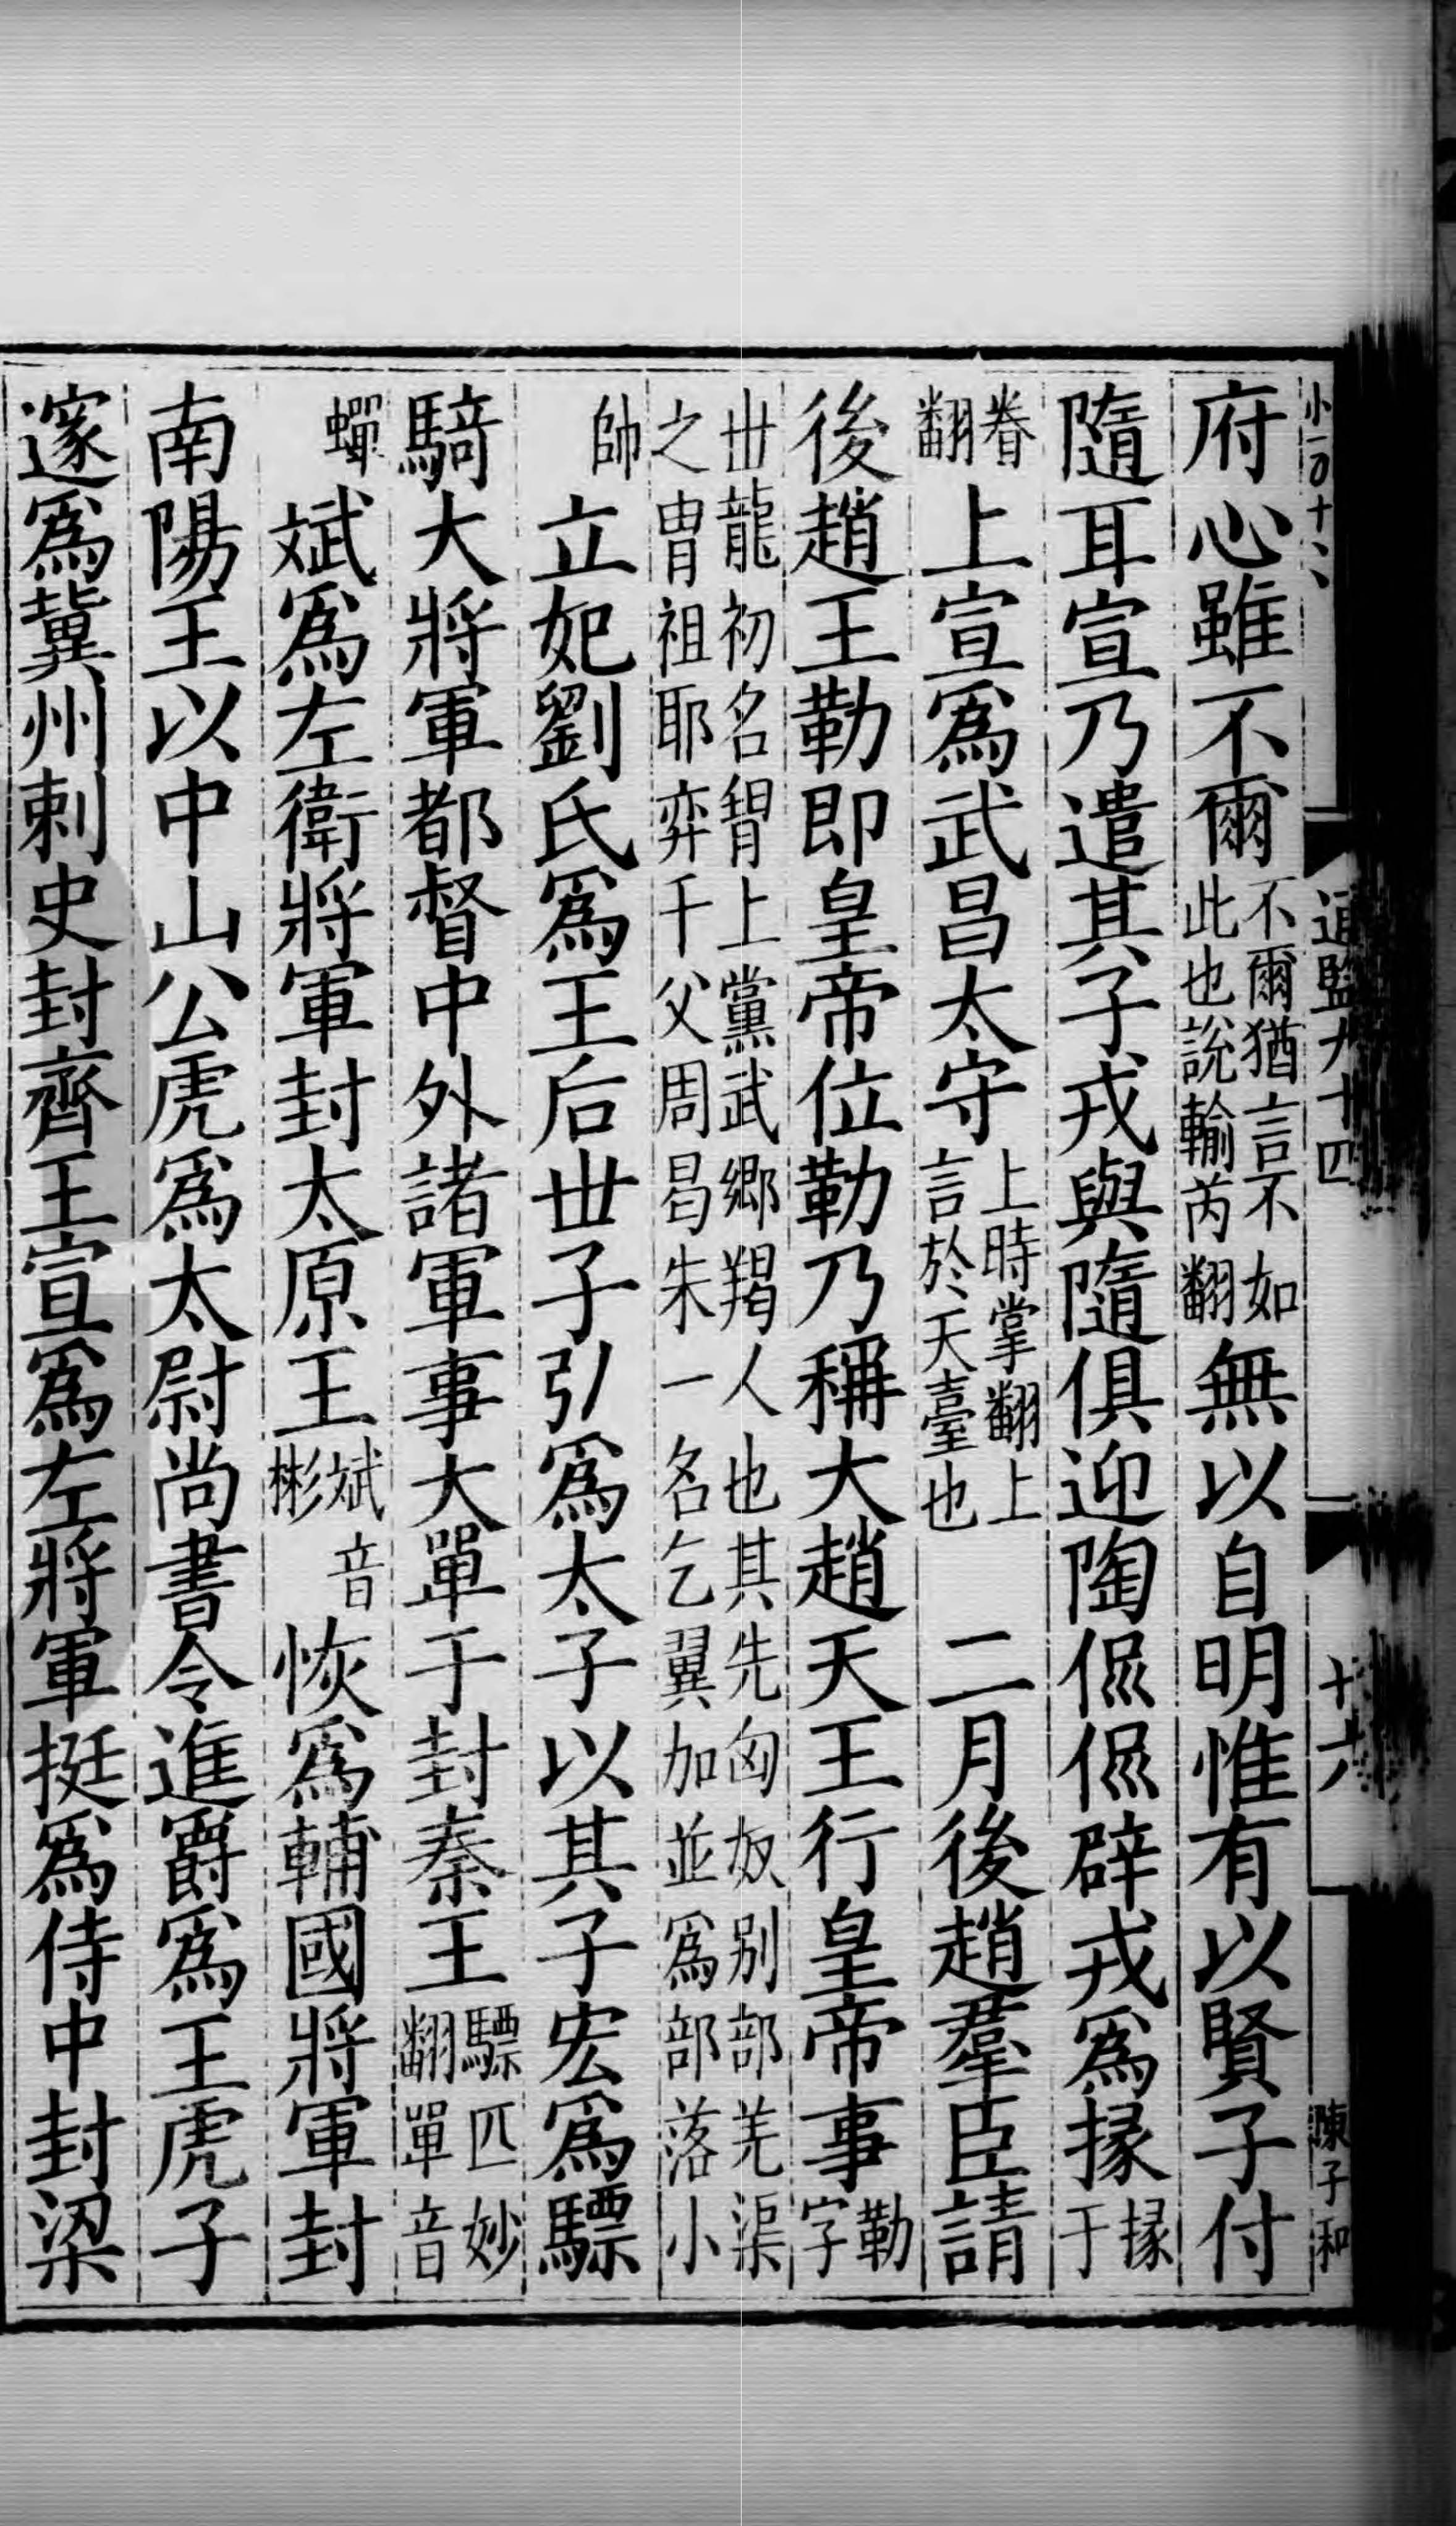 小一百十八
通監九十四
十六
陳子和
府心雖不爾不爾猶言不如此也說輸芮翻無以自明惟有以賢子付
隨耳宣乃遣其子戎與隨俱迎陶侃侃辟戎爲掾掾于
眷翻上宣爲武昌太守上時掌翻上言於天臺也二月後趙羣臣請
後趙王勒即皇帝位勒乃稱大趙天王行皇帝事勒字
世龍初名㔨上黨武鄉羯人也其先匈奴別部羌渠之胄祖耶弈千父周曷朱一名乞翼加並爲部落小
帥立妃劉氏爲王后世子弘爲太子以其子宏爲驃
騎大將軍都督中外諸軍事大單于封秦王驃匹妙翻單音
蟬斌爲左衛將軍封太原王斌音彬恢爲輔國將軍封
南陽王以中山公虎爲太尉尚書令進爵爲王虎子
邃爲冀州刺史封齊王宣爲左將軍挺爲侍中封梁